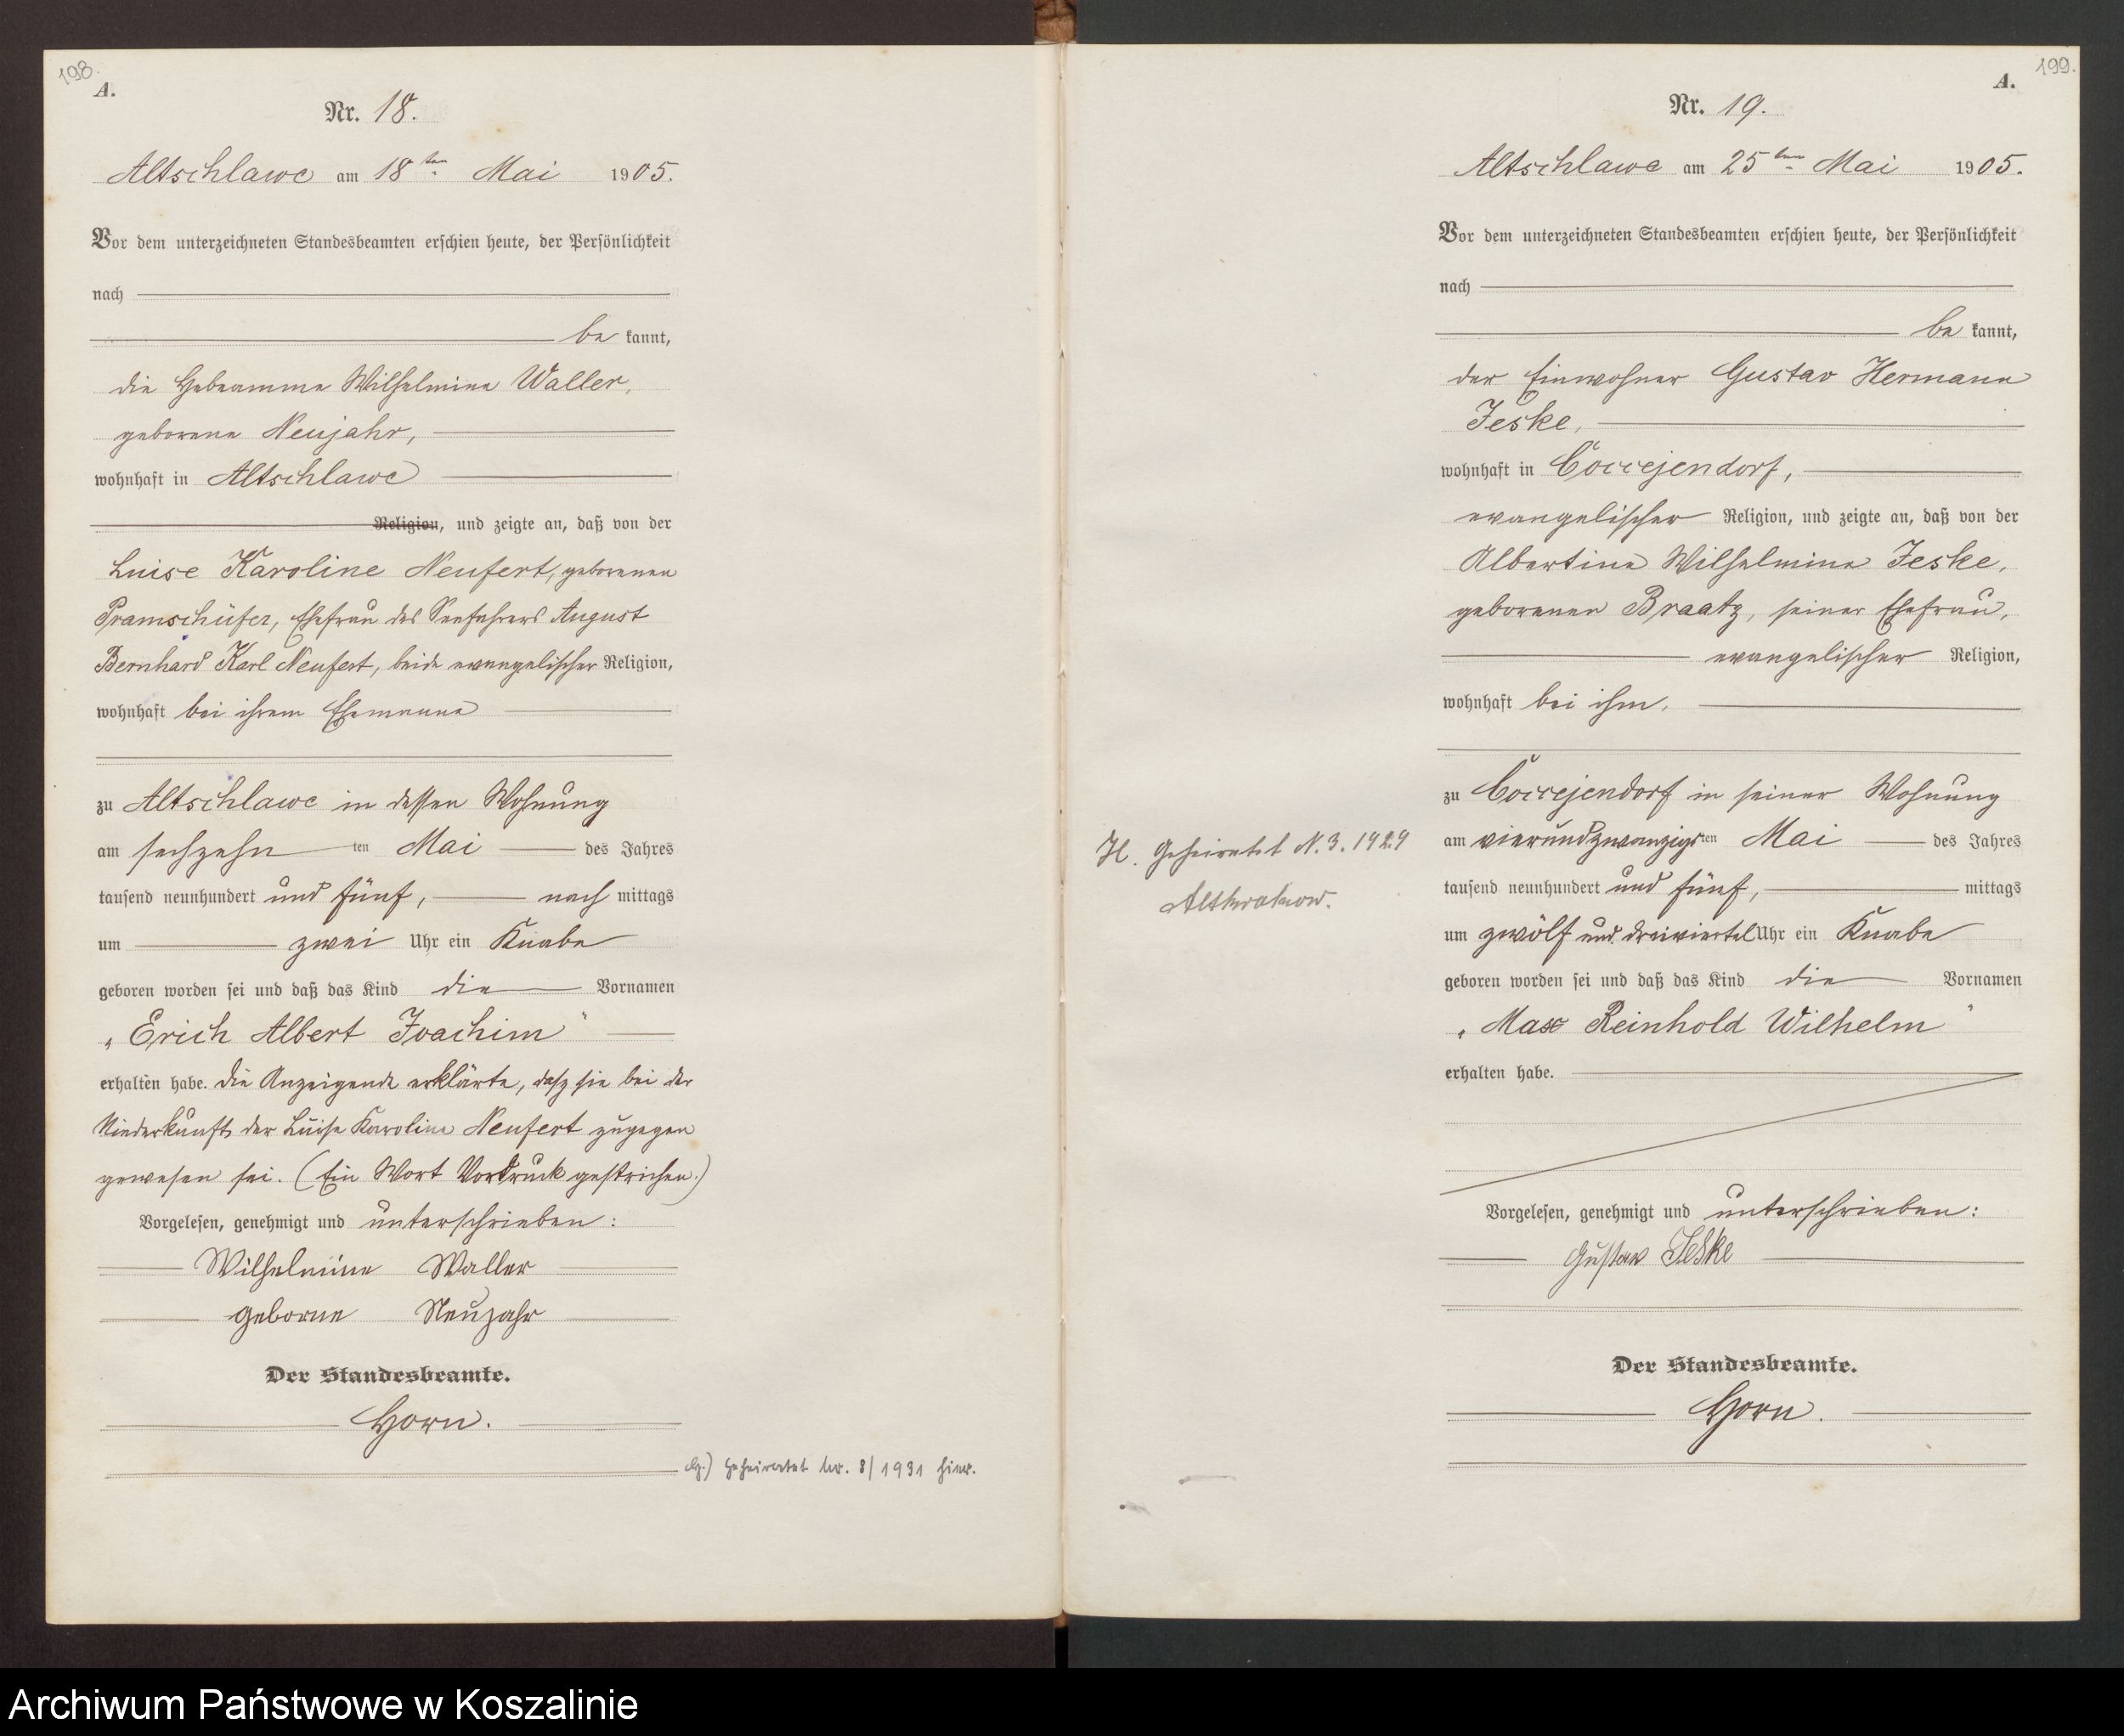 198.
A.
Nr. 18.
Altschlawe am 18ten Mai 1905.
Vor dem unterzeichneten Standesbeamten erschien heute, der Persönlichkeit
nach
be kannt,
die Hebeamme Wilhelmine Waller,
geborene Neujahr,
wohnhaft in Altschlawe
Religion, und zeigte an, daß von der
Luise Karoline Neufert, geborenen
Pramschüfer, Ehefrau des Seefahrers August
Bernhard Karl Neufert, beide evangelischer Religion,
wohnhaft bei ihrem Ehemanne
zu Altschlawe in dessen Wohnung
am sechzehn ten Mai des Jahres
tausend neunhundert und fünf, nach mittags
um zwei Uhr ein Knabe
geboren worden sei und daß das Kind die Vornamen
„Erich Albert Joachim"
erhalten habe. Die Anzeigende erklärte, dasz sie bei der
Niederkunft der Luise Karoline Neufert zugegen
gewesen sei. (Ein Wort Vordruck gestrichen.)
Vorgelesen, genehmigt und unterschrieben:
Wilhelmine Waller
geborne Neujahr
Der Standesbeamte.
Horn.
Geheiratet Nr. 8/1931 hier.
199.
A.
Nr. 19.
Altschlawe am 25ten Mai 1905.
Vor dem unterzeichneten Standesbeamten erschien heute, der Persönlichkeit
nach
be kannt,
der Einwohner Gustav Hermann
Jeske,
wohnhaft in Coccejendorf,
evangelischer Religion, und zeigte an, daß von der
Albertine Wilhelmine Jeske,
geborenen Braatz, seiner Ehefrau,
evangelischer Religion,
wohnhaft bei ihm,
zu Coccejendorf in seiner Wohnung
am vierundzwanzigsten Mai des Jahres
tausend neunhundert und fünf, mittags
um zwölf und dreiviertel Uhr ein Knabe
geboren worden sei und daß das Kind die Vornamen
„Max Reinhold Wilhelm"
erhalten habe.
H. Geheiratet N. 3. 1929
Altkrakow.
Vorgelesen, genehmigt und unterschrieben:
Gustav Jeske
Der Standesbeamte.
Horn.
Archiwum Państwowe w Koszalinie